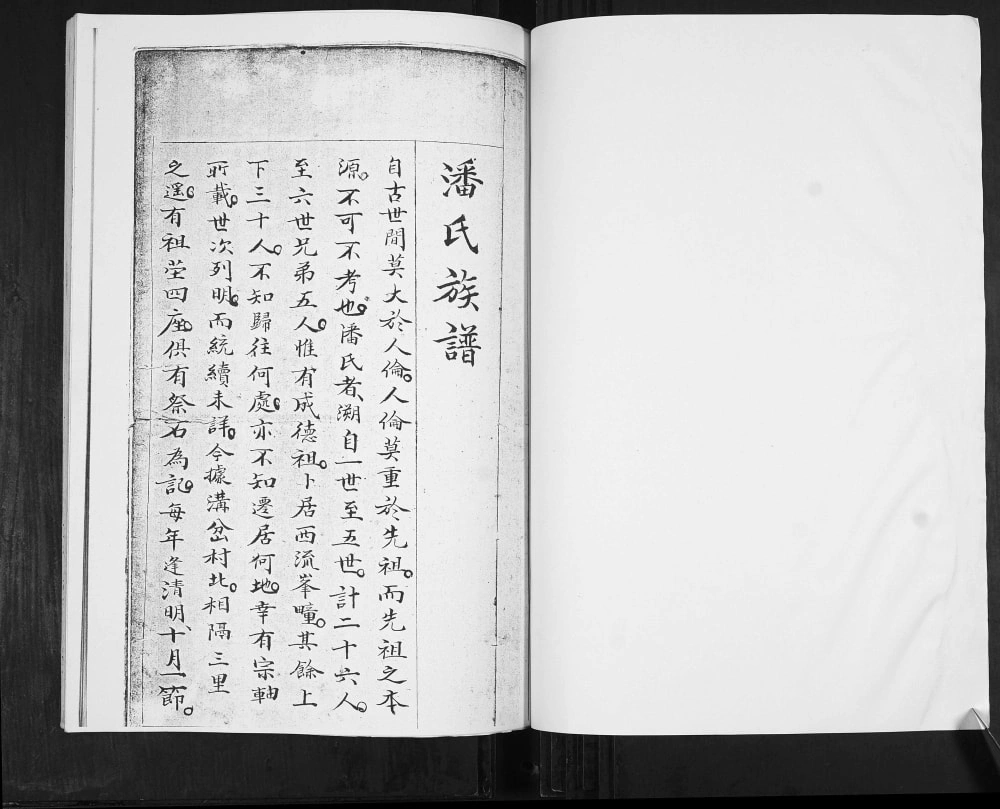 潘氏族譜
自古世間莫大於人倫。人倫莫重於先祖。而先祖之本
源。不可不考也。潘氏者、溯自一世至五世。計二十六人。
至六世兄弟五人。惟有成德祖。卜居西流峯疃。其餘上
下三十人。不知歸往何處。亦不知遷居何地。幸有宗軸
所載。世次列明。而統續未詳。今據溝岔村北。相隔三里
之遥。有祖茔四座。俱有祭石為記。每年逢清明、十月一節。